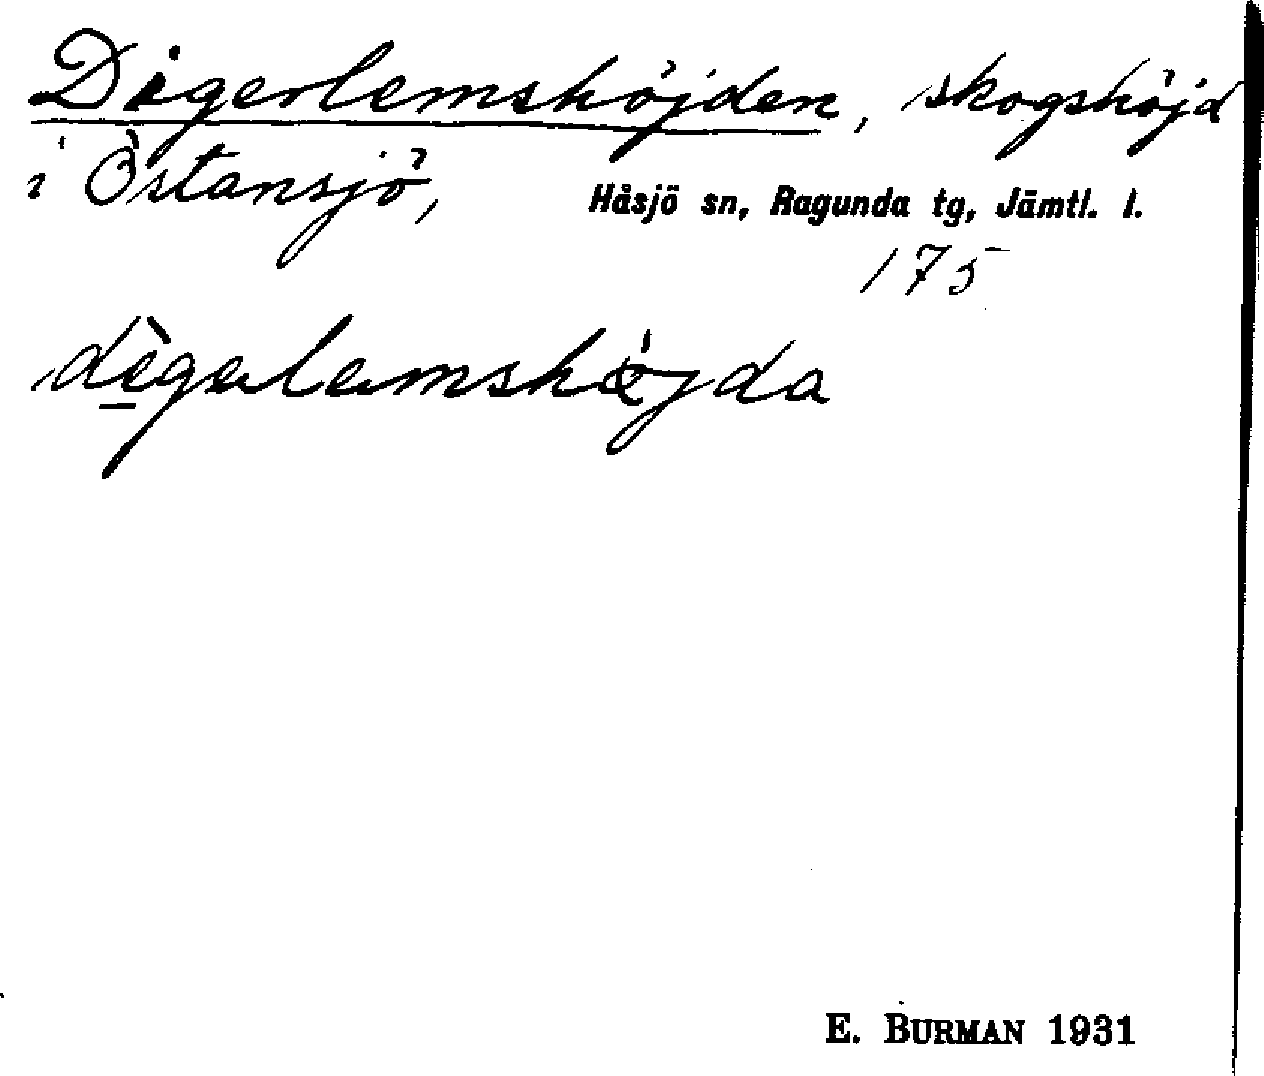 Digerlemshöjden, skogshöjd
i Östansjö, Håsjö sn, Ragunda tg, Jämtl. l.
175
dı̀galamshö́jda
E. BURMAN 1931